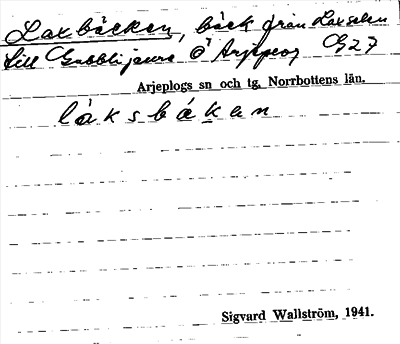 Laxbäcken, bäck från Laxselen
till Gubblijaure Ö Arjeplog G27
Arjeplogs sn och tg, Norrbottens län.
láksbäkən
Sigvard Wallström, 1941.